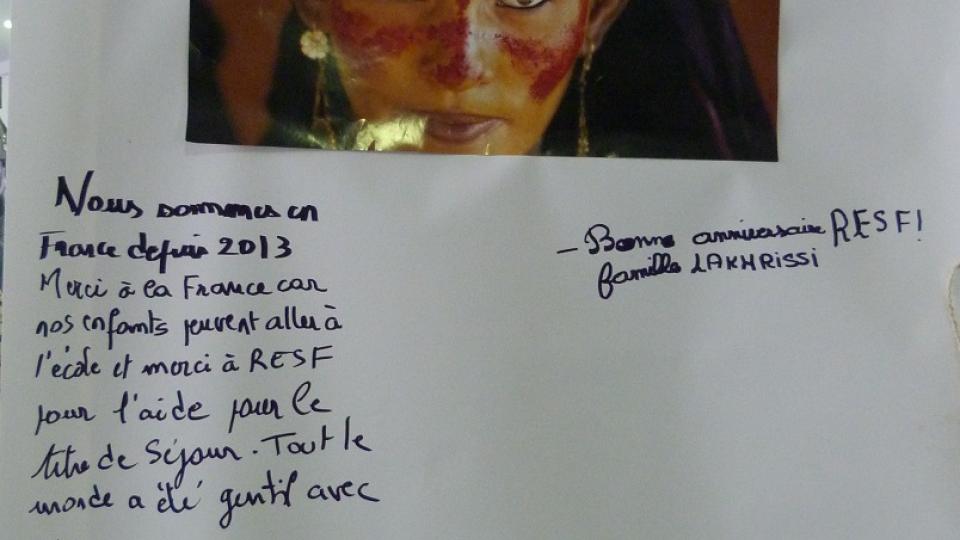 Nous sommes en
France depuis 2013
Merci à la France car
nos enfants peuvent aller à
l'école et merci à RESF
pour l'aide pour le
titre de Séjour. Tout le
monde a été gentil avec
– Bonne anniversaire RESF!
famille LAKHRISSI